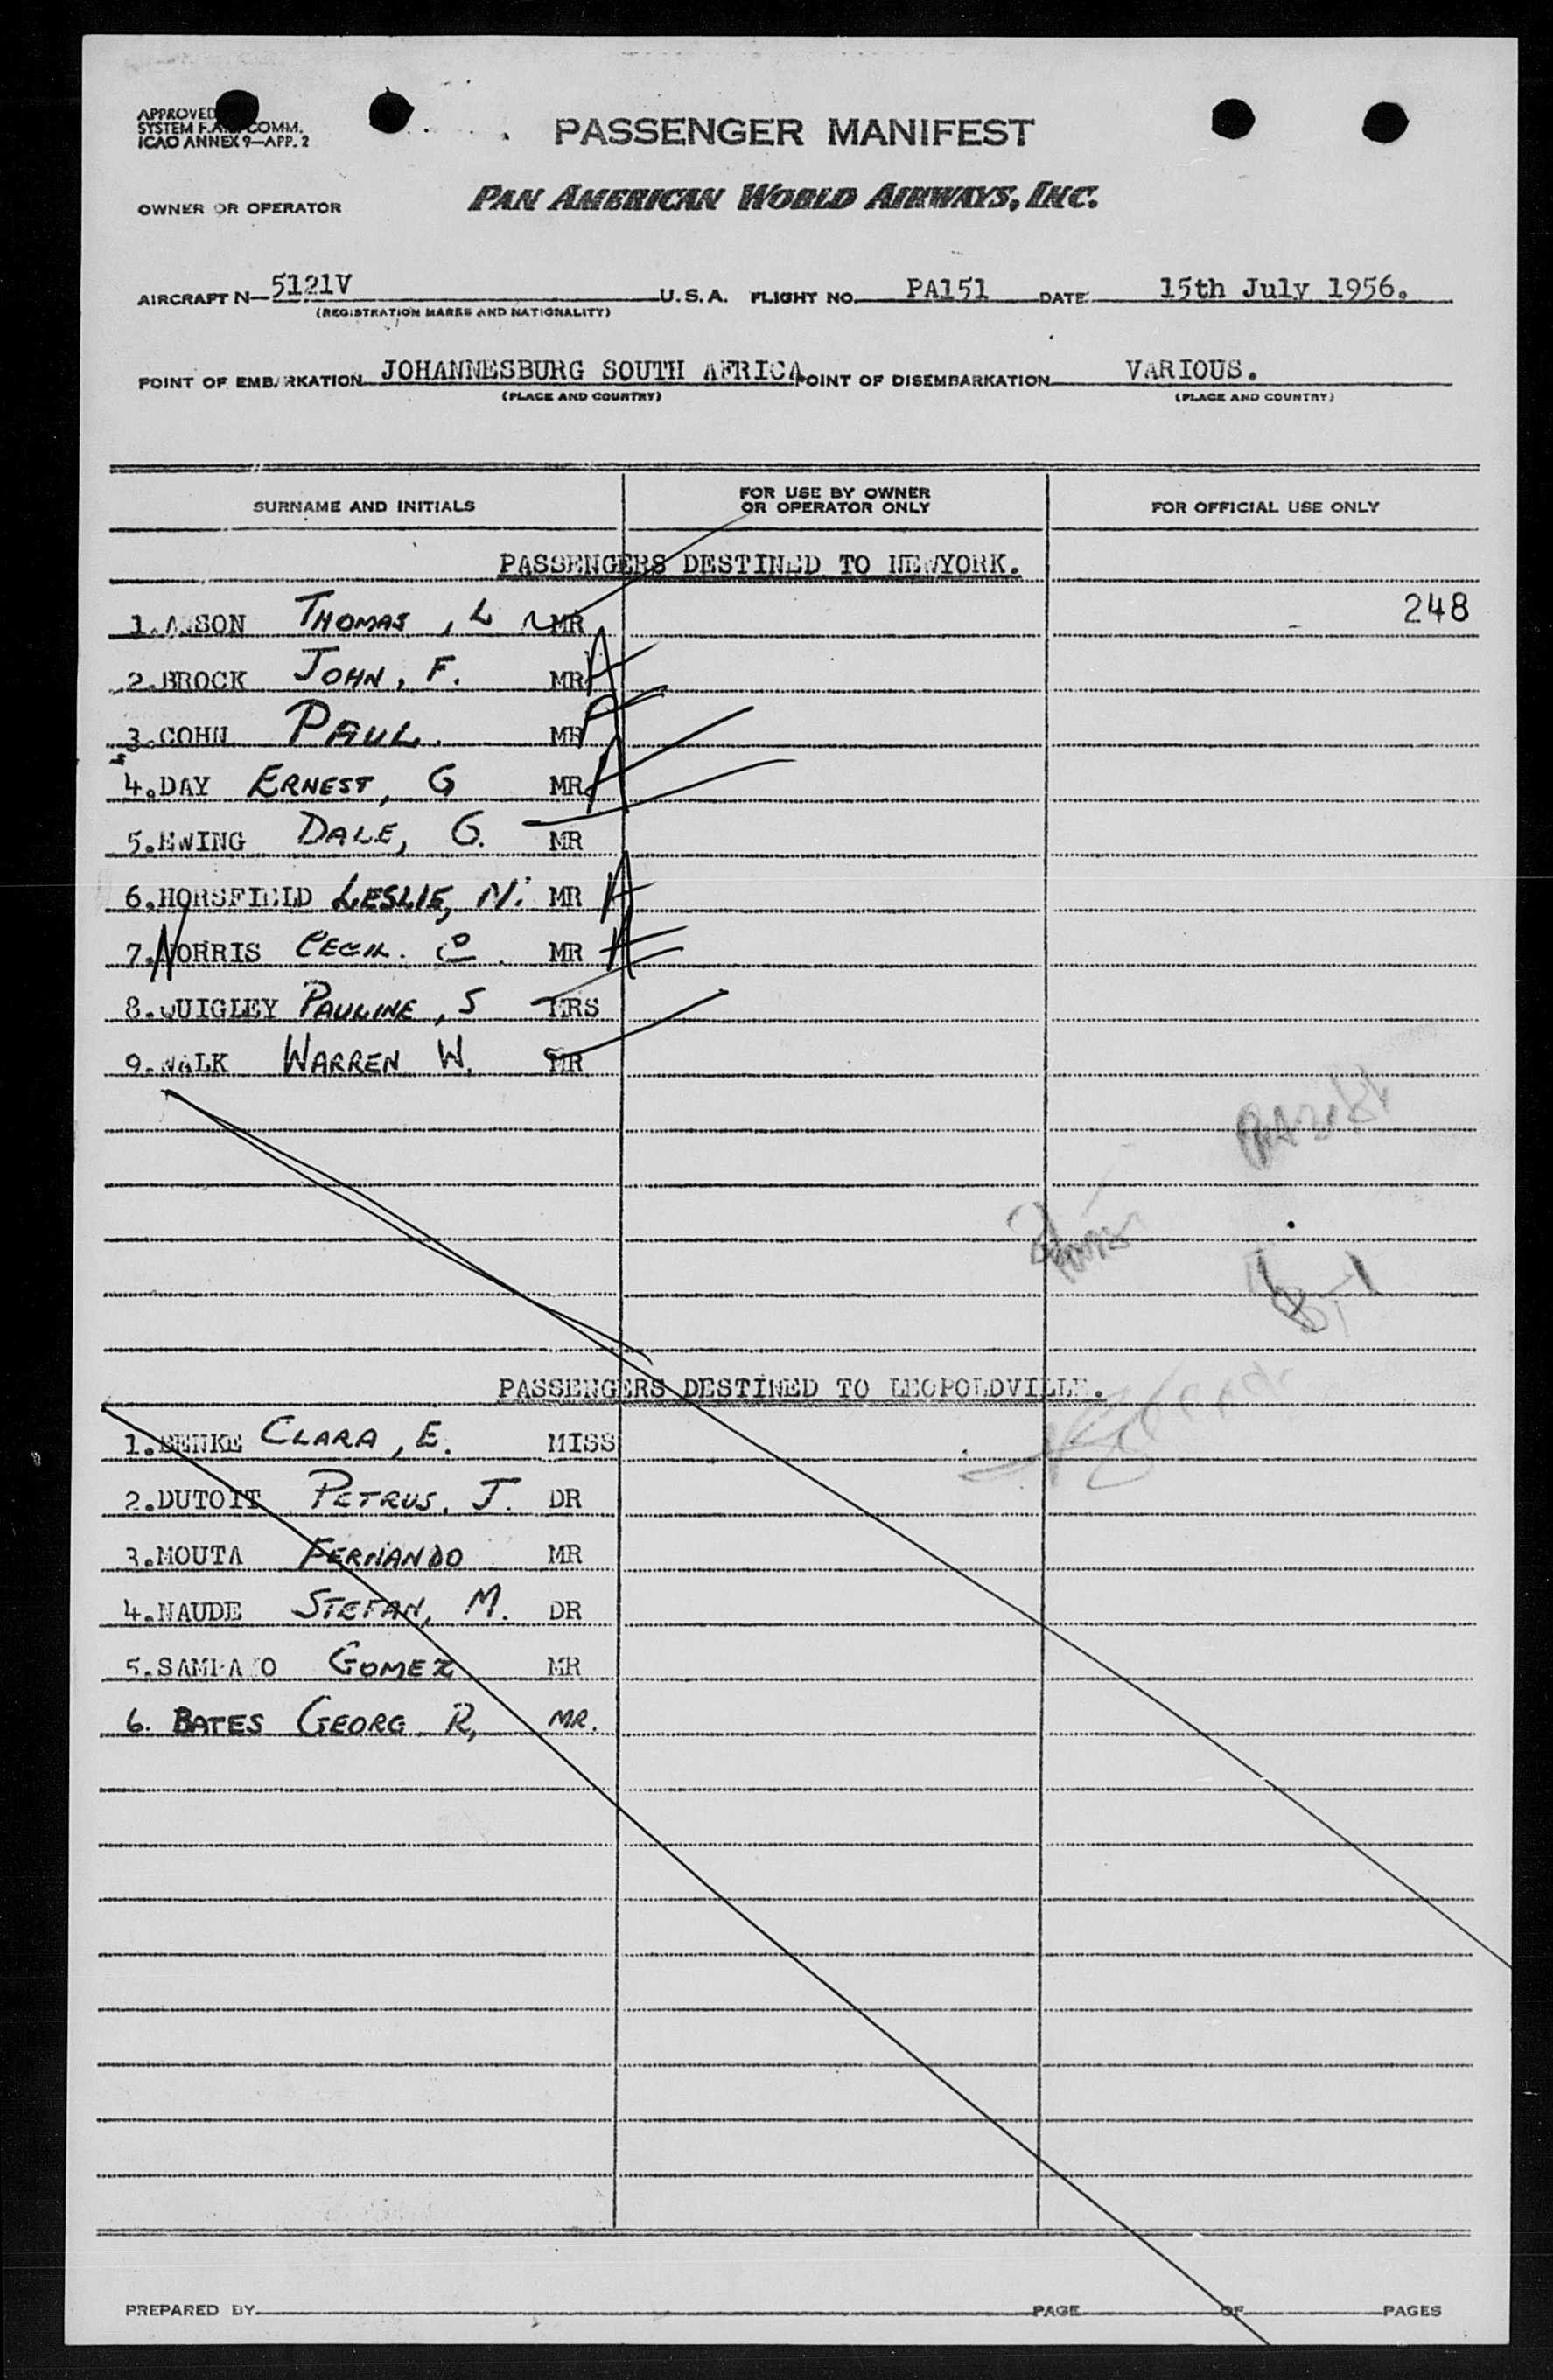 APPROVED
SYSTEM F.A. COMM.
ICAO ANNEX 9—APP. 2
PASSENGER MANIFEST
OWNER OR OPERATOR PAN AMERICAN WORLD AIRWAYS, INC.
AIRCRAFT N— 5121V U.S.A. FLIGHT NO. PA151 DATE 15th July 1956.
(REGISTRATION MARKS AND NATIONALITY)
POINT OF EMBARKATION JOHANNESBURG SOUTH AFRICA POINT OF DISEMBARKATION VARIOUS.
(PLACE AND COUNTRY) (PLACE AND COUNTRY)
SURNAME AND INITIALS FOR USE BY OWNER OR OPERATOR ONLY FOR OFFICIAL USE ONLY
PASSENGERS DESTINED TO NEWYORK.
1. THOMAS, L MR 248
2.BROCK JOHN, F. MR A
3.COHN PAUL. MR A
4.DAY ERNEST, G MR A
5.EWING DALE, G. MR
6.HORSFIELD LESLIE, N. MR A
7.NORRIS CECIL. O. MR A
8.QUIGLEY PAULINE, S MRS
9.WALK WARREN W. MR
PASSENGERS DESTINED TO LEOPOLDVILLE.
1.BENKE CLARA, E. MISS
2.DUTOIT PETRUS. J. DR
3.MOUTA FERNANDO MR
4.NAUDE STEFAN, M. DR
5. GOMEZ MR
6. BATES GEORG R, MR.
PREPARED BY PAGE OF PAGES